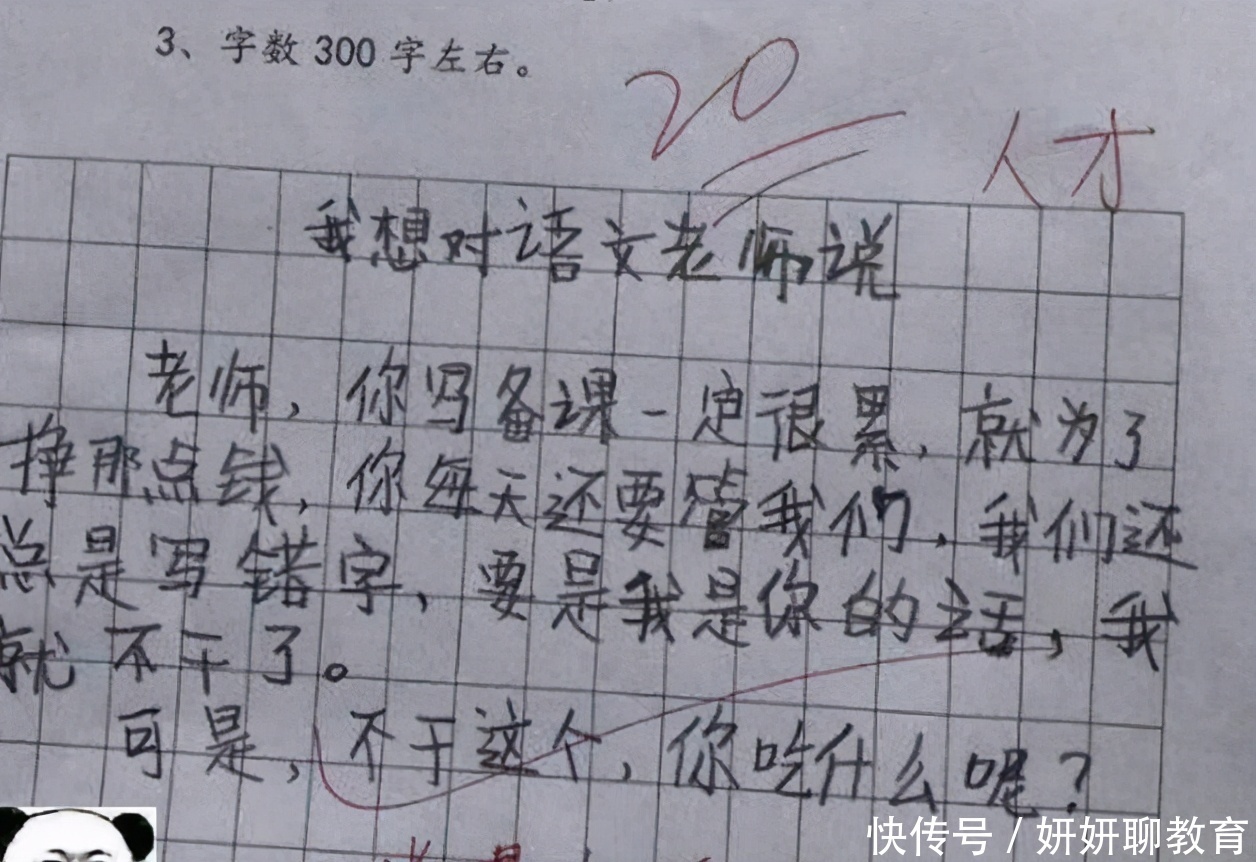 3、字数300字左右。
20
人才
我想对语文老师说
老师,你写备课一定很累,就为了
挣那点钱,你每天还要管我们,我们还
总是写错字,要是我是你的话,我
就不干了。
可是,不干这个,你吃什么呢?
快传号 / 妍妍聊教育